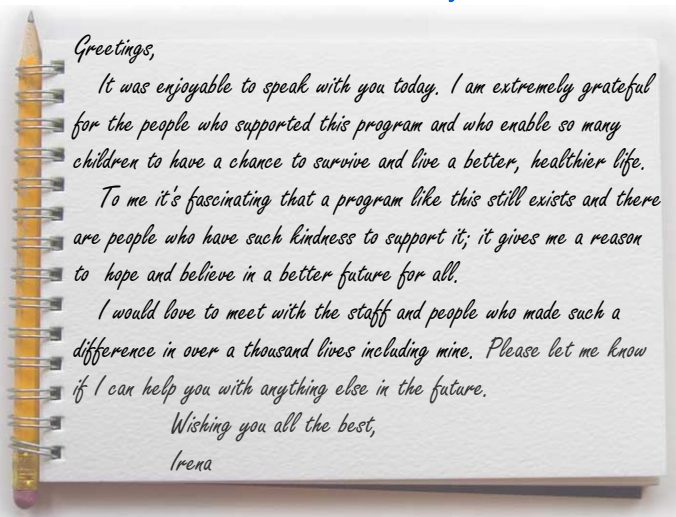 Greetings,
It was enjoyable to speak with you today. I am extremely grateful
for the people who supported this program and who enable so many
children to have a chance to survive and live a better, healthier life.
To me it's fascinating that a program like this still exists and there
are people who have such kindness to support it; it gives me a reason
to hope and believe in a better future for all.
I would love to meet with the staff and people who made such a
difference in over a thousand lives including mine. Please let me know
if I can help you with anything else in the future.
Wishing you all the best,
Irena